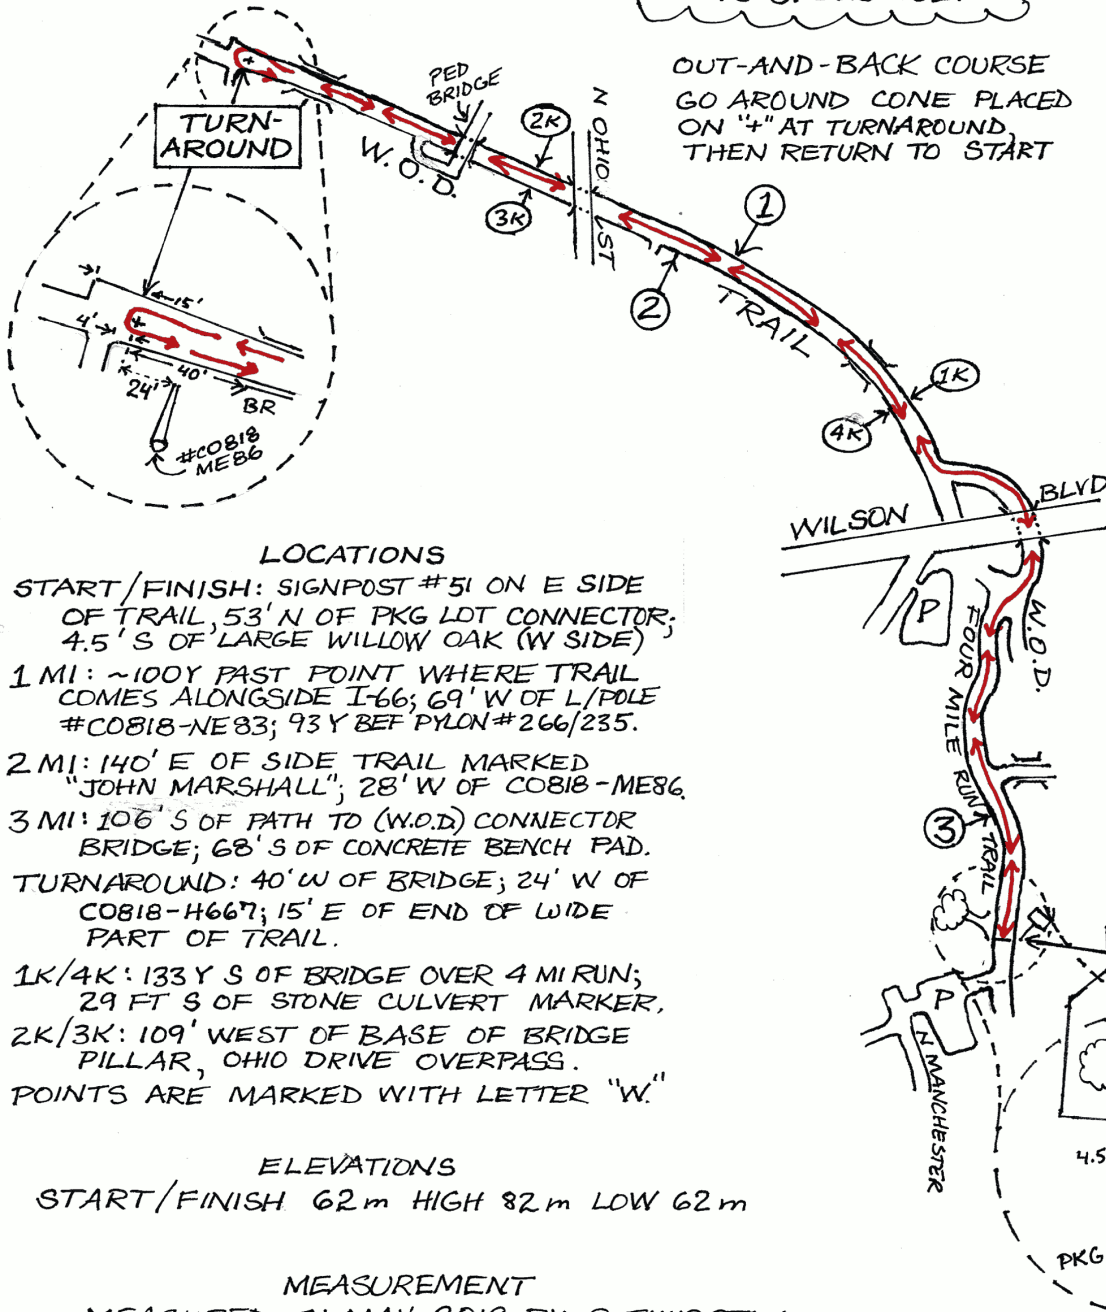 OUT-AND-BACK COURSE
GO AROUND CONE PLACED
ON "+" AT TURNAROUND,
THEN RETURN TO START
TURN-
AROUND
PED
BRIDGE
W.O.D.
2K
3K
N OHIO ST
1
2
TRAIL
1K
4K
15'
4'
40'
24'
BR
#C0818
ME86
WILSON BLVD
P
W.O.D.
FOUR MILE RUN TRAIL
3
P
N MANCHESTER
4.5
PKG
LOCATIONS
START/FINISH: SIGNPOST #51 ON E SIDE
OF TRAIL, 53' N OF PKG LOT CONNECTOR;
4.5' S OF LARGE WILLOW OAK (W SIDE)
1 MI: ~100Y PAST POINT WHERE TRAIL
COMES ALONGSIDE I-66; 69' W OF L/POLE
#C0818-NE83; 93 Y BEF PYLON #266/235.
2 MI: 140' E OF SIDE TRAIL MARKED
"JOHN MARSHALL"; 28' W OF C0818-ME86.
3 MI: 106' S OF PATH TO (W.O.D) CONNECTOR
BRIDGE; 68' S OF CONCRETE BENCH PAD.
TURNAROUND: 40' W OF BRIDGE; 24' W OF
C0818-H667; 15' E OF END OF WIDE
PART OF TRAIL.
1K/4K: 133 Y S OF BRIDGE OVER 4 MI RUN;
29 FT S OF STONE CULVERT MARKER.
2K/3K: 109' WEST OF BASE OF BRIDGE
PILLAR, OHIO DRIVE OVERPASS.
POINTS ARE MARKED WITH LETTER "W."
ELEVATIONS
START/FINISH 62m HIGH 82m LOW 62m
MEASUREMENT